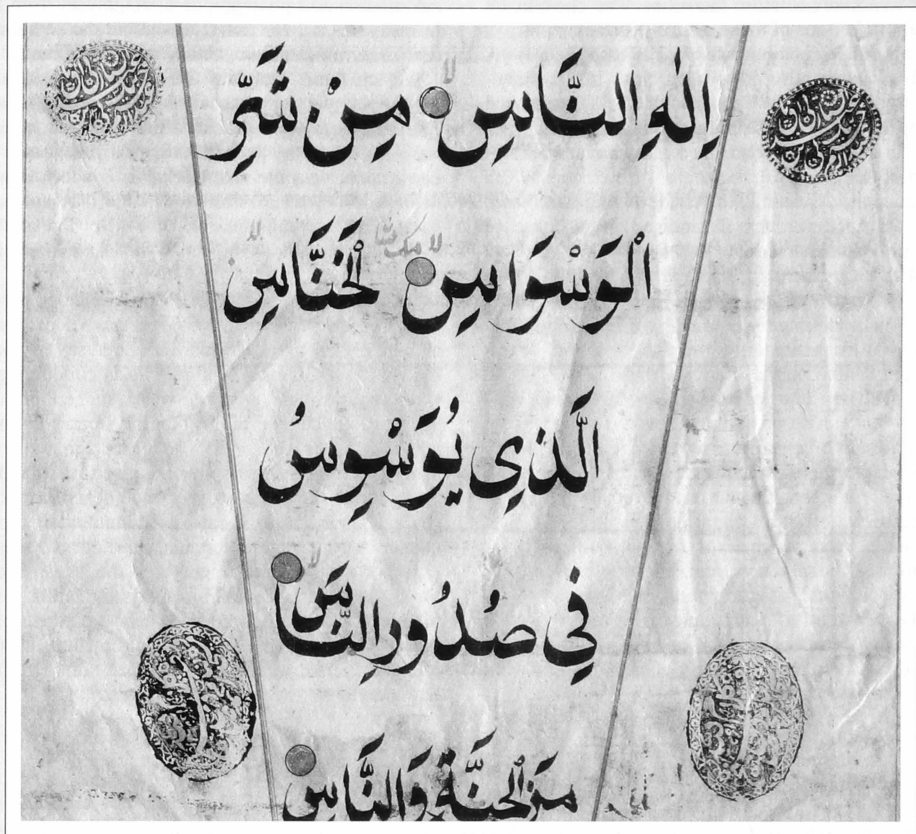 اِلٰهِ النَّاسِ مِنْ شَرِّ
الْوَسْوَاسِ الْخَنَّاسِ
الَّذِي يُوَسْوِسُ
فِي صُدُورِ النَّاسِ
مِنَ الْجِنَّةِ وَالنَّاسِ